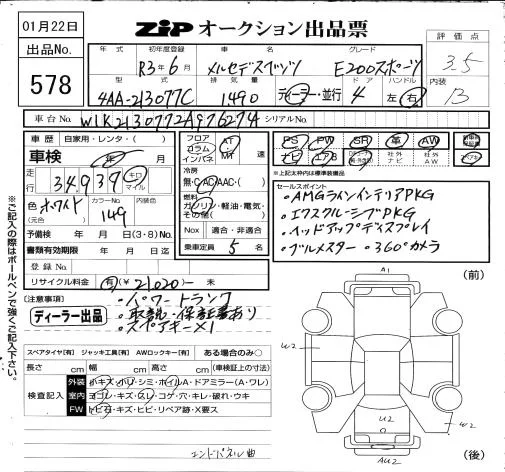 01月22日
ZiP オークション出品票
出品No.
578
評価点
3.5
内装
B
年式 初年度登録 車名 グレード
R3年6月 メルセデスベンツ E200スポーツ
型式 排気量 ドア ハンドル
4AA-213077C 1490 ディーラー・並行 4 左 右
車台No. W1K2130772A976274 シリアルNo.
車歴 自家用・レンタ・( )
車検 年 月
走行 34,939 キロ マイル
色 ホワイト (元色) カラーNo. 149 内装色
予備検 年 月 日(3・8)No.
書類有効期限 年 月 日
登録No.
リサイクル料金 有(¥21,020)- 未
フロア コラム インパネ AT MT 速
冷房 無・C・AC(AAC・( )
燃料 ガソリン・軽油・電気・その他( )
Nox 適合・非適合
乗車定員 5 名
PS PW SR 革 AW
ナビ エアB 社外ナビ 社外AW
※上記太枠内は標準装備品
セールスポイント
・AMGラインインテリアPKG
・エクスクルーシブPKG
・ヘッドアップディスプレイ
・ブルメスター ・360°カメラ
(注意事項)
ディーラー出品
・パワートランク
・取説・保証書あり
・スペアキー×1
スペアタイヤ[有] ジャッキ工具[有] AWロックキー[有] ある場合のみ○
長さ cm 幅 cm 高さ cm (車検証上の寸法)
検査記入
外装 小キズ・ホリ・シミ・ホイルA・ドアミラー(A・ワレ)
室内 ヨゴレ・キズ・スレ・コゲ・穴・キレ・破れ・ウキ
FW トビ石・キズ・ヒビ・リペア跡・X要ス
エンドパネル曲
※ご記入の際はボールペンで強くご記入下さい。
(前)
A1
U2
U2
W2
AU2
(後)